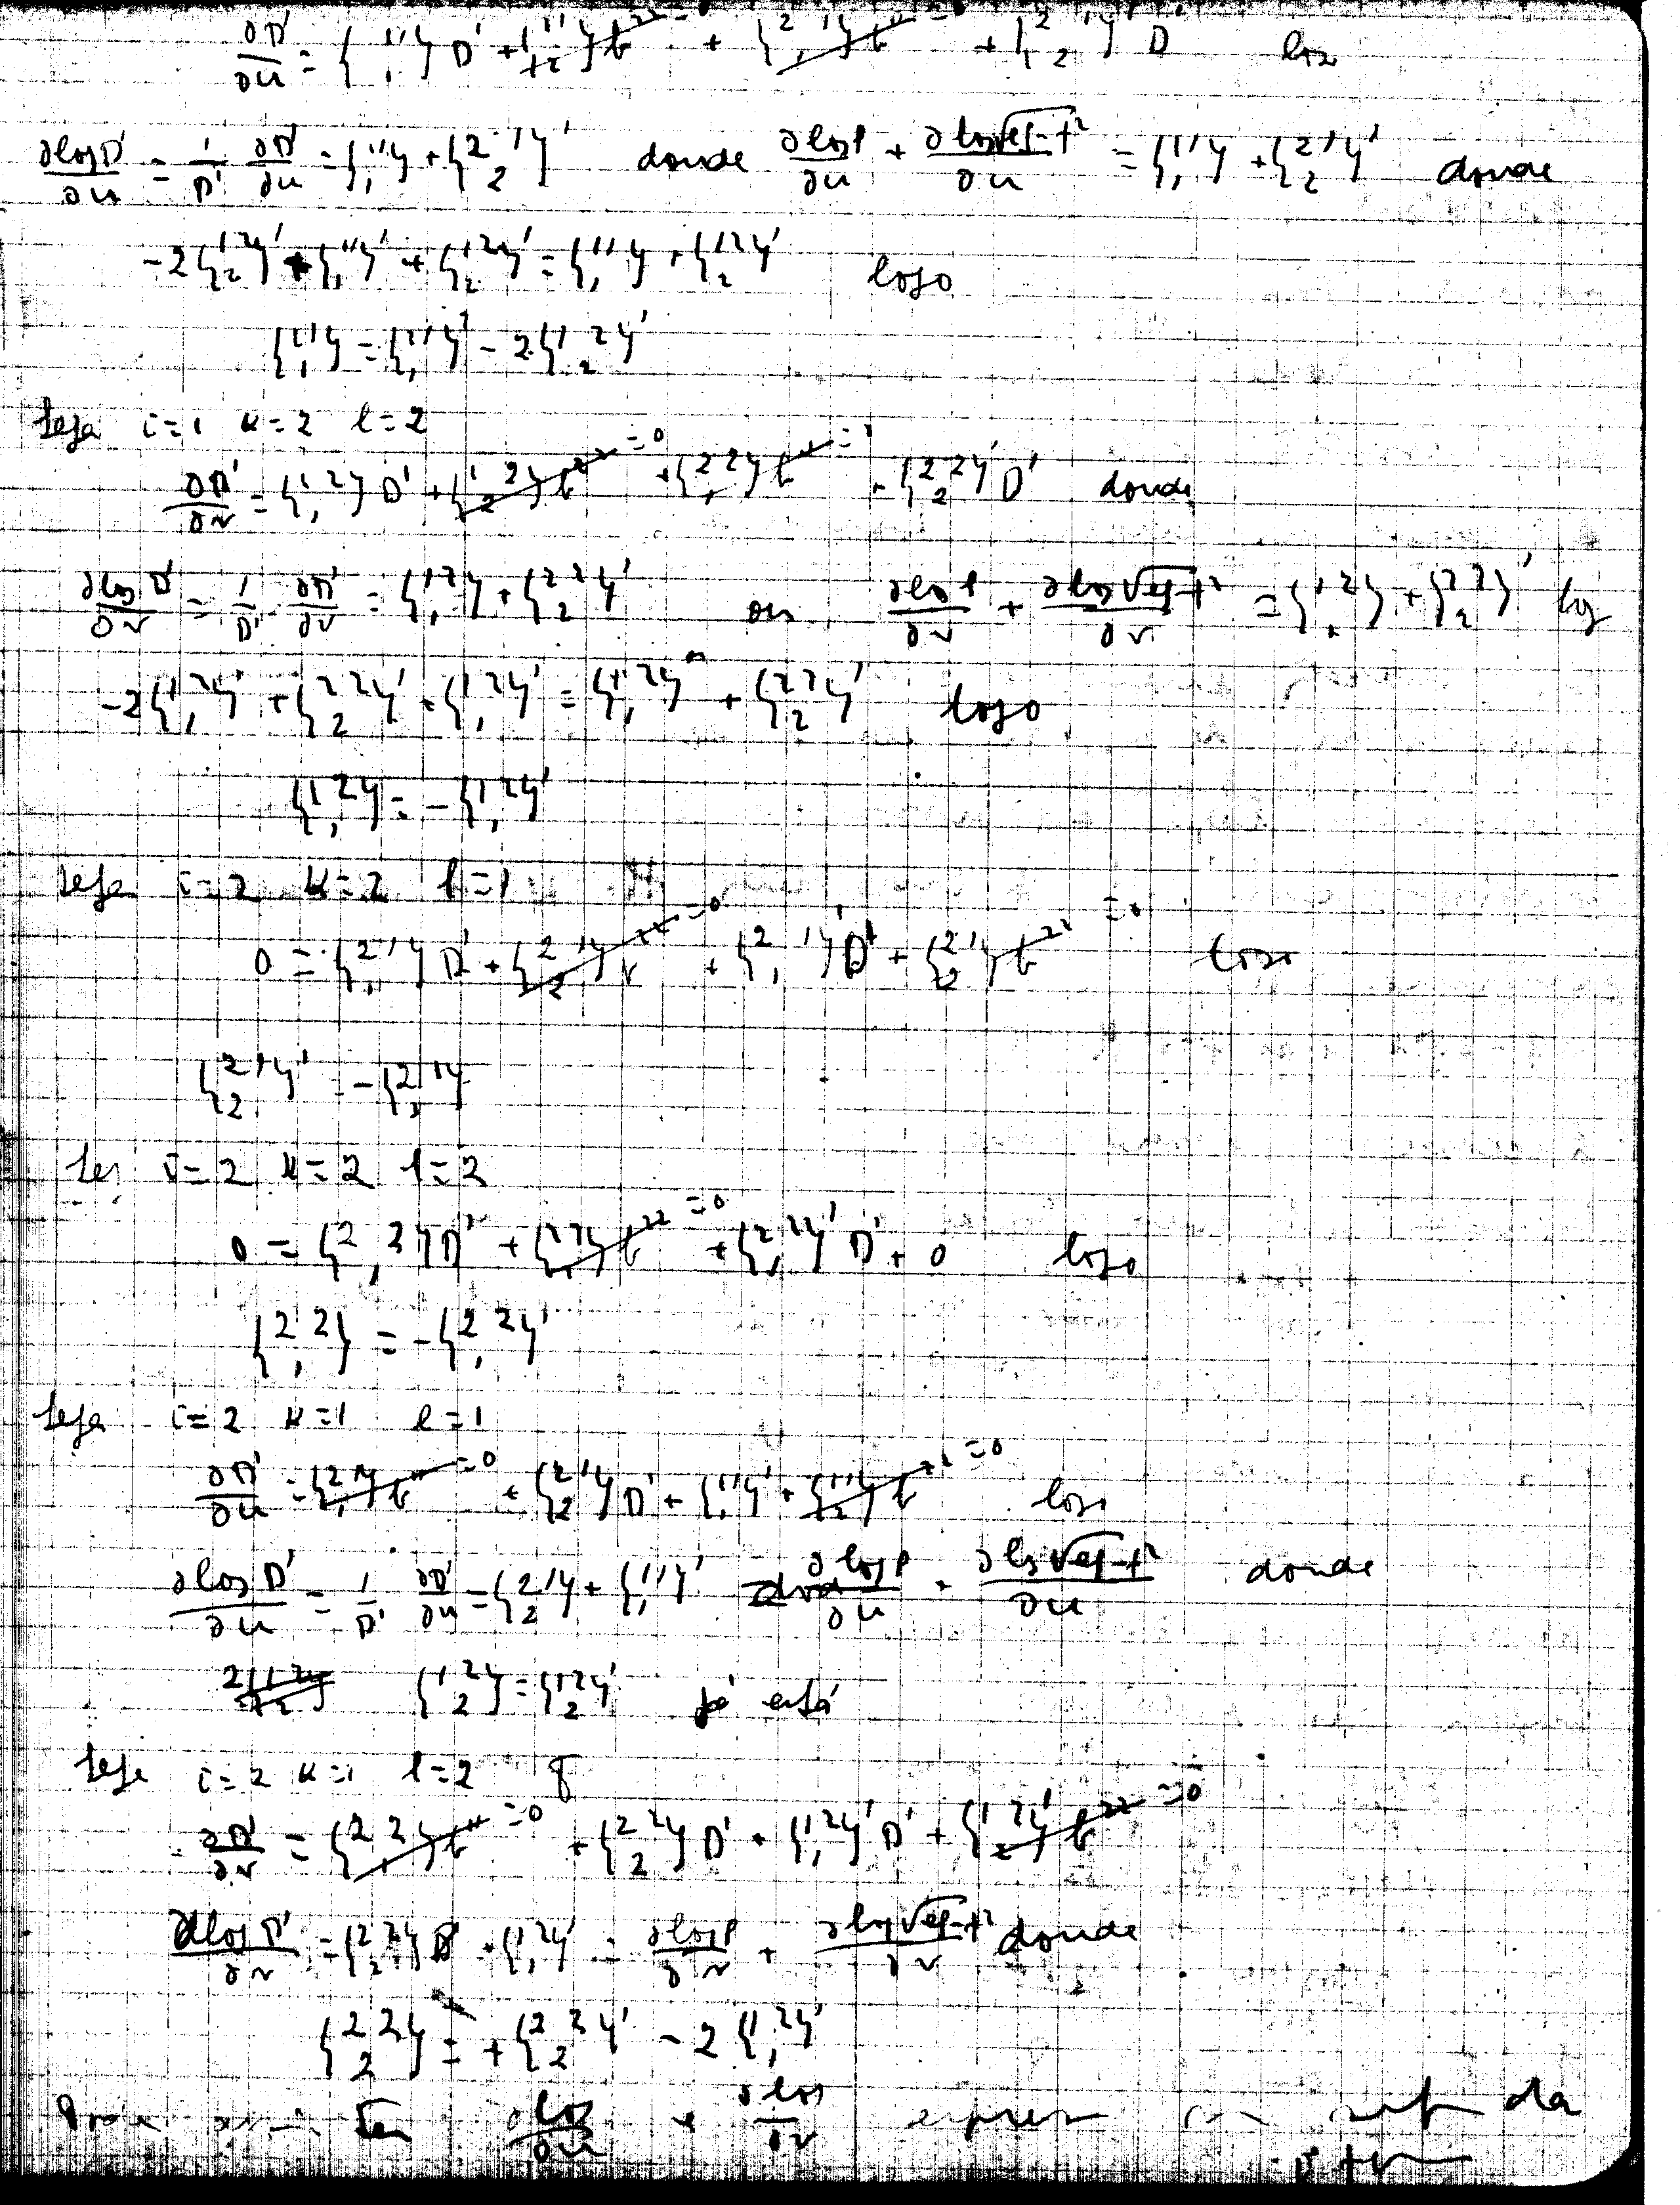 ∂D'/∂u = {11 1} D' + {11 2} b²²=0 + {21 1}' b¹¹=0 + {21 2}' D' logo
∂log D'/∂u = 1/D' ∂D'/∂u = {11 1} + {21 2}' donde ∂logρ/∂u + ∂log√eg-f²/∂u = {11 1} + {21 2}' donde
-2{12 2}' + {11 1}' + {12 2}' = {11 1} + {12 2}' logo
{11 1} = {11 1}' - 2{12 2}'
Seja i=1 k=2 l=2
∂D'/∂v = {12 1} D' + {12 2} b²²=0 + {22 1} b¹¹=0 + {22 2}' D' donde
∂log D'/∂v = 1/D' ∂D'/∂v = {12 1} + {22 2}' ou ∂logρ/∂v + ∂log√eg-f²/∂v = {12 1} + {22 2}' log
-2{12 1}' + {22 2}' + {12 1}' = {12 1} + {22 2}' logo
{12 1} = -{12 1}'
Seja i=2 k=2 l=1
0 = {21 1} D' + {21 2} b²²=0 + {21 1}' D' + {21 2} b²¹=0 logo
{21 2}' = -{21 1}
Sej i=2 k=2 l=2
0 = {22 1} D' + {22 1} b²²=0 + {22 1}' D' + 0 logo
{22 1} = -{22 1}'
Seja i=2 k=1 l=1
∂D'/∂u = {21 1} b¹¹=0 + {21 2} D' + {11 1}' + {11 2} b²²=0 logo
∂log D'/∂u = 1/D' ∂D'/∂u = {21 2} + {11 1}' = ∂logρ/∂u + ∂log√eg-f²/∂u donde
{12 2} = {12 2}' já está
Seja i=2 k=1 l=2
∂D'/∂v = {22 1} b¹¹=0 + {22 2} D' + {12 1}' D' + {12 2}' b²²=0
∂log D'/∂v = {22 2} D' + {12 1}' = ∂logρ/∂v + ∂log√eg-f²/∂v donde
{22 2} = +{22 2}' - 2{12 1}'
∂log/∂u e ∂log/∂v da